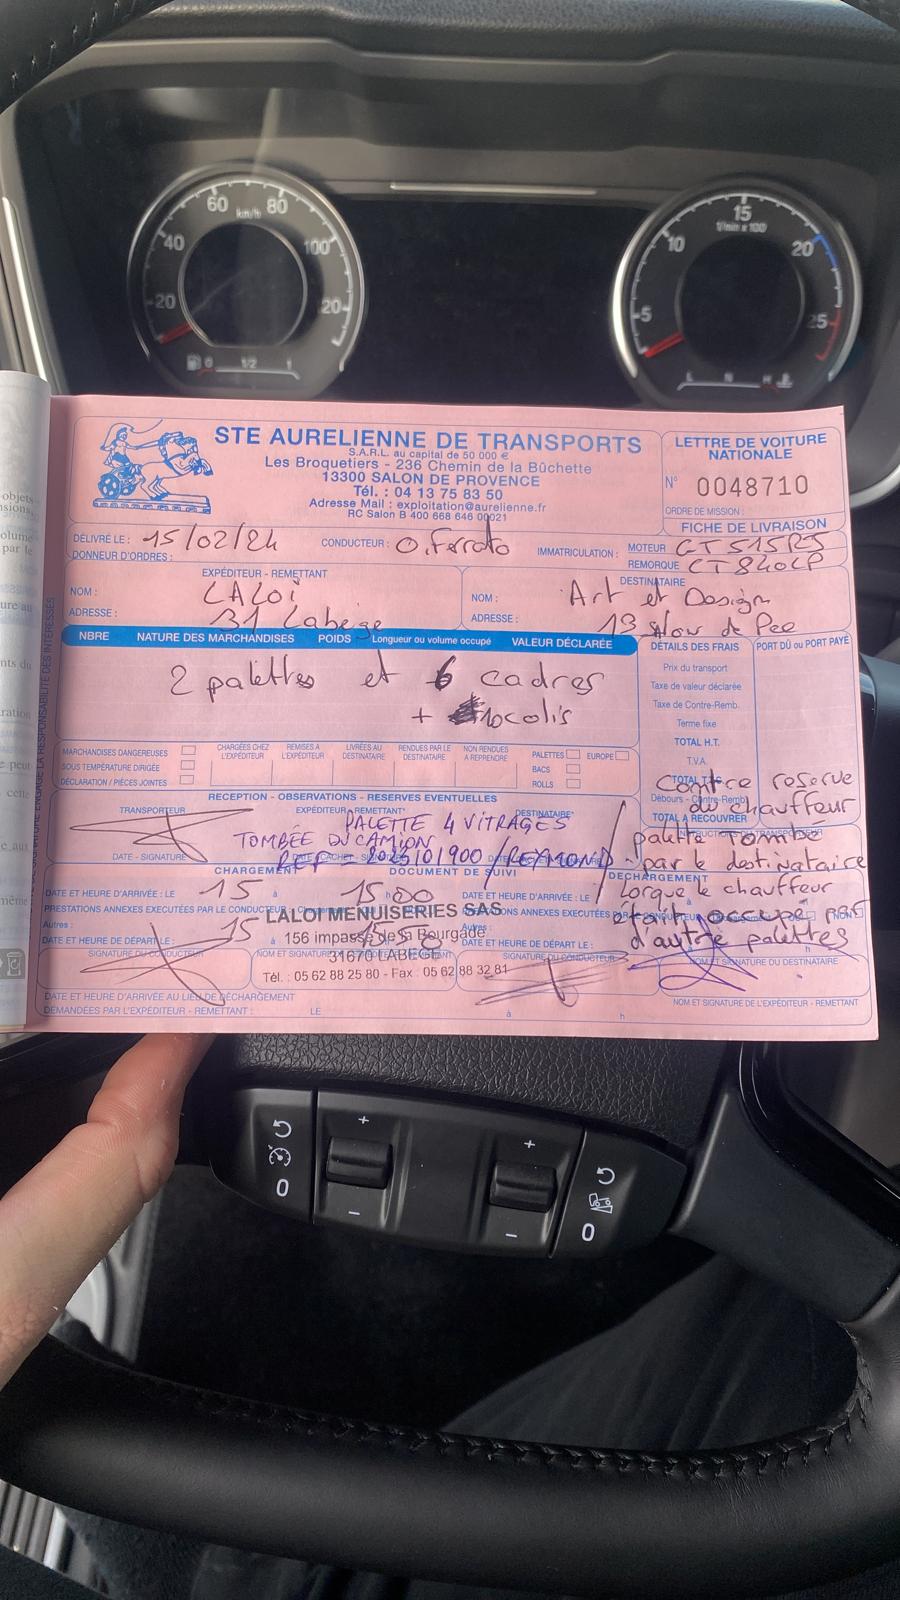 60 80
km/h
40 100
20 20
0 1/2 1
15
1/min x 100
10 20
5 25
STE AURELIENNE DE TRANSPORTS
S.A.R.L. au capital de 50 000 €
Les Broquetiers - 236 Chemin de la Bûchette
13300 SALON DE PROVENCE
Tél. : 04 13 75 83 50
Adresse Mail : exploitation@aurelienne.fr
RC Salon B 400 668 646 00021
LETTRE DE VOITURE
NATIONALE
N° 0048710
ORDRE DE MISSION :
FICHE DE LIVRAISON
DÉLIVRÉ LE : 15/02/24 CONDUCTEUR : IMMATRICULATION : MOTEUR
DONNEUR D'ORDRES : REMORQUE
EXPÉDITEUR - REMETTANT
NOM : LALOI
ADRESSE : 31 Labège
DESTINATAIRE
NOM : Art et Design
ADRESSE : 13
NBRE NATURE DES MARCHANDISES POIDS Longueur ou volume occupé VALEUR DÉCLARÉE
2 palettes et 6 cadres
+ colis
DÉTAILS DES FRAIS PORT DÛ ou PORT PAYÉ
Prix du transport
Taxe de valeur déclarée
Taxe de Contre-Remb.
Terme fixe
TOTAL H.T.
T.V.A.
TOTAL
Débours - Contre-Remb.
TOTAL A RECOUVRER
MARCHANDISES DANGEREUSES
SOUS TEMPÉRATURE DIRIGÉE
DÉCLARATION / PIÈCES JOINTES
CHARGÉES CHEZ L'EXPÉDITEUR
REMISES A L'EXPÉDITEUR
LIVRÉES AU DESTINATAIRE
RENDUES PAR LE DESTINATAIRE
NON RENDUES A REPRENDRE
PALETTES EUROPE
BACS
ROLLS
RECEPTION - OBSERVATIONS - RESERVES EVENTUELLES
TRANSPORTEUR EXPÉDITEUR REMETTANT DESTINATAIRE
PALETTE 4 VITRAGES
TOMBÉE DU CAMION
REF /REYMOND
DATE - SIGNATURE
Contre reserve
du chauffeur
palette tombé
par le destinataire
lorque le chauffeur
était occupé par
d'autre palettes
CHARGEMENT DOCUMENT DE SUIVI DECHARGEMENT
DATE ET HEURE D'ARRIVÉE : LE 15 à 15 h 00
DATE ET HEURE D'ARRIVÉE : LE
PRESTATIONS ANNEXES EXÉCUTÉES PAR LE CONDUCTEUR
Autres :
DATE ET HEURE DE DÉPART LE : 15 à
DATE ET HEURE DE DÉPART LE :
LALOI MENUISERIES SAS
156 impasse de la Bourgade
31670 LABEGE
Tél. : 05 62 88 25 80 - Fax : 05 62 88 32 81
SIGNATURE DU CONDUCTEUR
SIGNATURE DU CONDUCTEUR
NOM ET SIGNATURE DU DESTINATAIRE
DATE ET HEURE D'ARRIVÉE AU LIEU DE DÉCHARGEMENT
DEMANDÉES PAR L'EXPÉDITEUR - REMETTANT : LE à h
NOM ET SIGNATURE DE L'EXPÉDITEUR - REMETTANT
+ +
0 - - 0